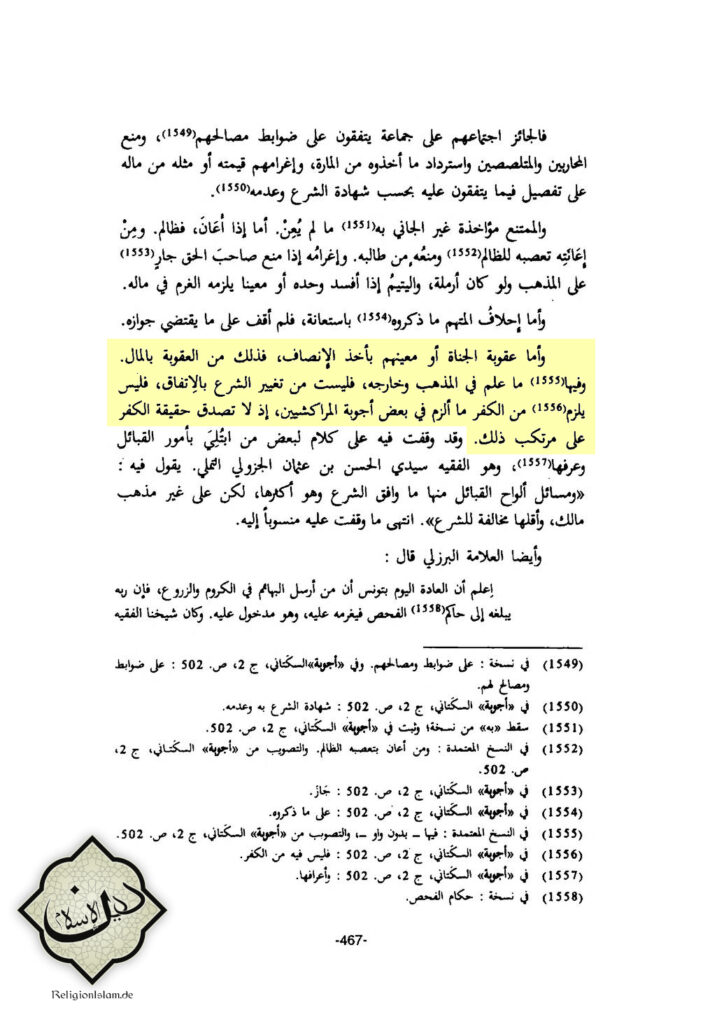 فالجائز اجتماعهم على جماعة يتفقون على ضوابط مصالحهم(1549)، ومنع
المحاربين والمتلصصين واسترداد ما أخذوه من المارة، وإغرامهم قيمته أو مثله من ماله
على تفصيل فيما يتفقون عليه بحسب شهادة الشرع وعدمه(1550).
والممتنع مؤاخذة غير الجاني به(1551) ما لم يُعِنْ. أما إذا أعَانَ، فظالم. ومِنْ
إعَانَتِه تعصبه للظالم(1552) ومنعُه من طالبه. وإغرامُه إذا منع صاحبَ الحق جارٍ(1553)
على المذهب ولو كان أرملة، واليتيمُ إذا أفسد وحده أو معينا يلزمه الغرم في ماله.
وأما إحلافُ المتهم ما ذكروه(1554) باستعانة، فلم أقف على ما يقتضي جوازه.
وأما عقوبة الجناة أو معينهم بأخذ الإنصاف، فذلك من العقوبة بالمال.
وفيها(1555) ما علم في المذهب وخارجه، فليست من تغيير الشرع بالاِتفاق، فليس
يلزم(1556) من الكفر ما ألزم في بعض أجوبة المراكشيين، إذ لا تصدق حقيقة الكفر
على مرتكب ذلك. وقد وقفت فيه على كلام لبعض من ابتُلِيَ بأمور القبائل
وعرفها(1557)، وهو الفقيه سيدي الحسن بن عثمان الجزولي التملي. يقول فيه :
«ومسائل ألواح القبائل منها ما وافق الشرع وهو أكثرها، لكن على غير مذهب
مالك، وأقلها مخالفة للشرع». انتهى ما وقفت عليه منسوباً إليه.
وأيضا العلامة البرزلي قال :
اِعلم أن العادة اليوم بتونس أن من أرسل البهائم في الكروم والزروع، فإن ربه
يبلغه إلى حاكم(1558) الفحص فيغرمه عليه، وهو مدخول عليه. وكان شيخنا الفقيه
(1549) في نسخة : على ضوابط ومصالحهم. وفي «أجوبة»السكّتاني، ج 2، ص. 502 : على ضوابط
ومصالح لهم.
(1550) في «أجوبة» السكّتاني، ج 2، ص. 502 : شهادة الشرع به وعدمه.
(1551) سقط «به» من نسخة؛ وثبت في «أجوبة» السكّتاني، ج 2، ص. 502.
(1552) في النسخ المعتمدة : ومن أعان بتعصبه الظالم. والتصويب من «أجوبة» السكّتاني، ج 2،
ص. 502.
(1553) في «أجوبة» السكّتاني، ج 2، ص. 502 : جَازَ.
(1554) في «أجوبة» السكّتاني، ج 2، ص. 502 : على ما ذكروه.
(1555) في النسخ المعتمدة : فيها ـ بدون واو ـ، والتصوب من «أجوبة» السكّتاني، ج 2، ص. 502.
(1556) في «أجوبة» السكّتاني، ج 2، ص. 502 : فليس فيه من الكفر.
(1557) في «أجوبة» السكّتاني، ج 2، ص. 502 : وأعرافها.
(1558) في نسخة : حكام الفحص.
-467-
دين الإسلام
ReligionIslam.de